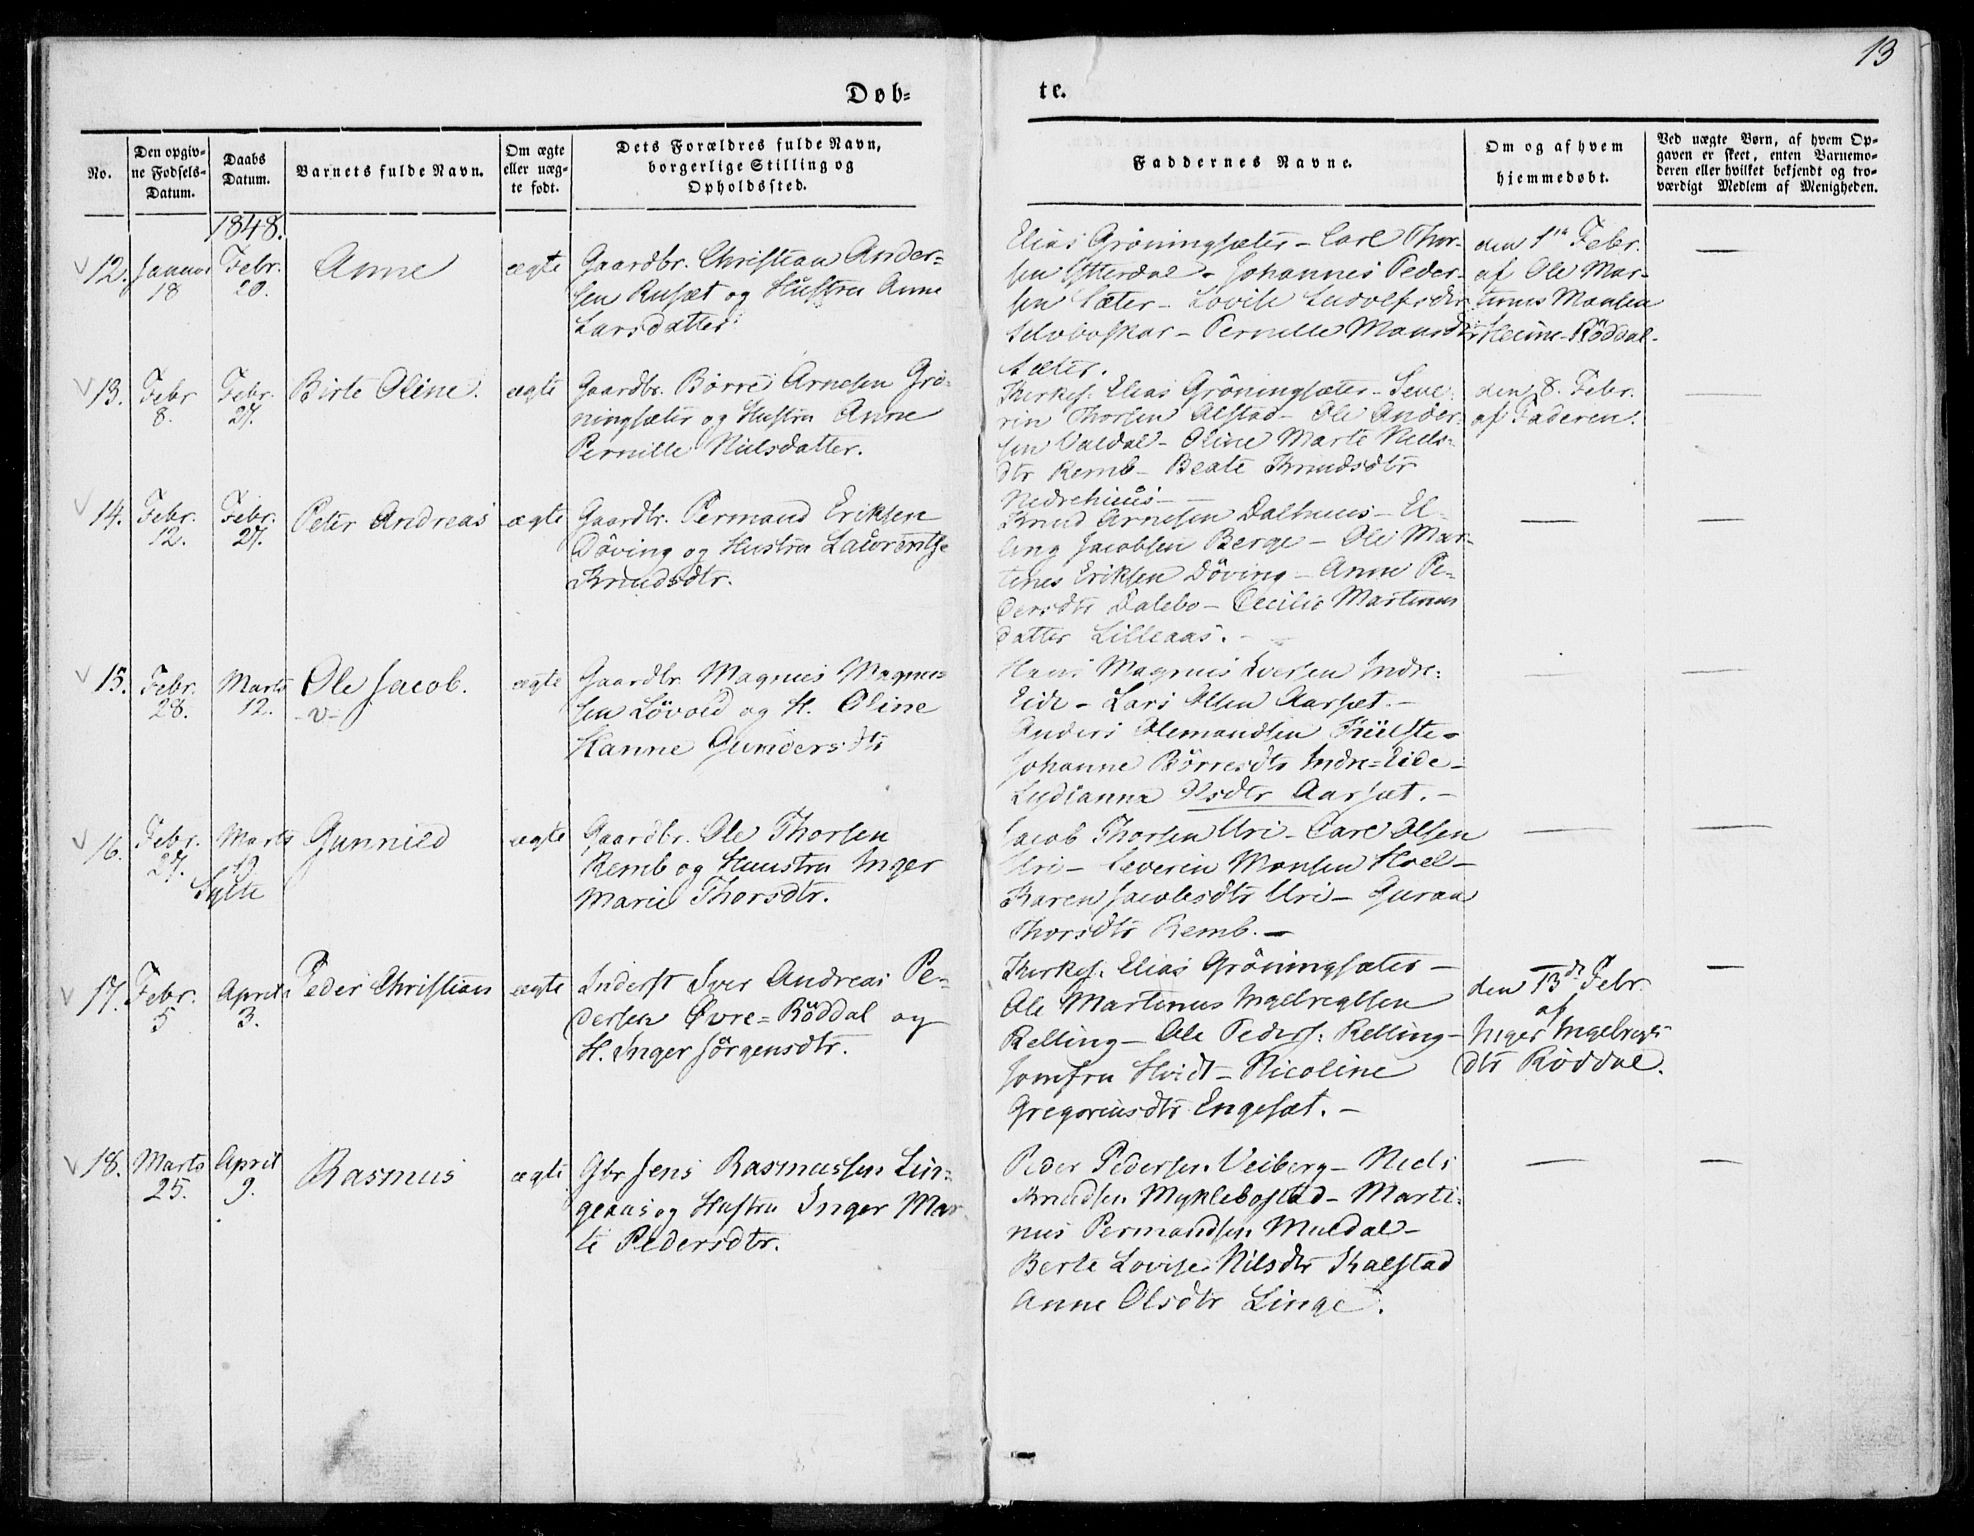 13
Døb-
te.
No.
Den opgiv-
ne Fødsels-
Datum.
Daabs
Datum.
Barnets fulde Navn.
Om ægte
eller uæg-
te født.
Dets Forældres fulde Navn,
borgerlige Stilling og
Opholdssted.
Faddernes Navne.
Om og af hvem
hjemmedøbt.
Ved uægte Børn, af hvem Op-
gaven er skeet, enten Barnemo-
deren eller hvilket bekjendt og tro-
værdigt Medlem af Menigheden.
1848.
12.
Januar
18
Febr.
20.
Anne
ægte
Gaardbr. Christian Ander-
sen Rusæt og Hustru Anne
Larsdatter
Elias Gröningsæter - Carl Thor-
sen Ytterdal - Johannes Peder-
sen Sæter - Lovise Ludolfsdtr
Selboskar - Pernille Monsdtr
Sæter.
den 1ste Febr.
af Ole Mar-
tinus Monsen
Heime-Röddal.
—
13.
Febr
8.
Febr.
27.
Birte Oline.
ægte
Gaardbr. Börre Arnesen Grö-
ningsæter og Hustru Anne
Pernille Nielsdatter.
Kirkes. Elias Gröningsæter - Seve-
rin Thorsen Alstad - Ole Ander-
sen Valdal - Oline Marte Niels-
dtr Remb - Beate Knudsdtr
Nedrehuus -
den 8. Febr.
af Faderen.
—
14.
Febr.
12.
Febr.
27.
Peter Andreas
ægte
Gaardbr. Permand Eriksen
Döving og Hustru Laurentse
Knudsdtr.
Knud Arnesen Dalhuus - El-
ling Jacobsen Berge - Ole Mar-
tines Eriksen Döving - Anne Pe-
dersdtr Dalebo - Cecilie Martinus
datter Lilleaas. -
—
—
15.
Febr.
28.
Marts
12.
Ole Jacob.
-v-
ægte
Gaardbr. Magnus Magnus-
sen Lövold og H. Oline
Hanne Gundersdtr
Hans Magnus Iversen Indre-
Eide - Lars Olsen Aarset. -
Anders Olemandsen Külste -
Johanne Börresdtr Indre=Eide -
Ludianna Olsdtr Aarsæt. -
—
—
16.
Febr.
27.
Marts
19
Sylte
Gunnild
ægte
Gaardbr. Ole Thorsen
Remb og Huustru Inger
Marie Thorsdtr.
Jacob Thorsen Uri - Carl Olsen
Uri - Severin Monsen Hoel -
Karen Jacobsdtr Uri - Guraa
Thorsdtr Remb. -
—
—
17.
Febr.
5
April
3.
Peder Christian
ægte
Inderst Iver Andreas Pe-
dersen Övre=Röddal og
H. Inger Jörgensdtr.
Kirkes. Elias Gröningsæter -
Ole Martinus Ingebregtsen
Relling - Ole Peders: Relling -
Jomfru Hvidt - Nicoline
Gregoriusdtr Engesæt. -
den 13de Febr.
af
Inger Ingebregts
dtr Röddal.
—
18.
Marts
25.
April
9.
Rasmus
ægte
Gbr Jens Rasmussen Lin-
geaas og Hustru Inger Mar-
te Pedersdtr.
Peder Pedersen Veiberg - Niels
Knudsen Myklebostad - Marti-
nus Permandsen Muldal -
Berte Lovise Nilsdtr Kalstad
Anne Olsdtr Linge.
—
—